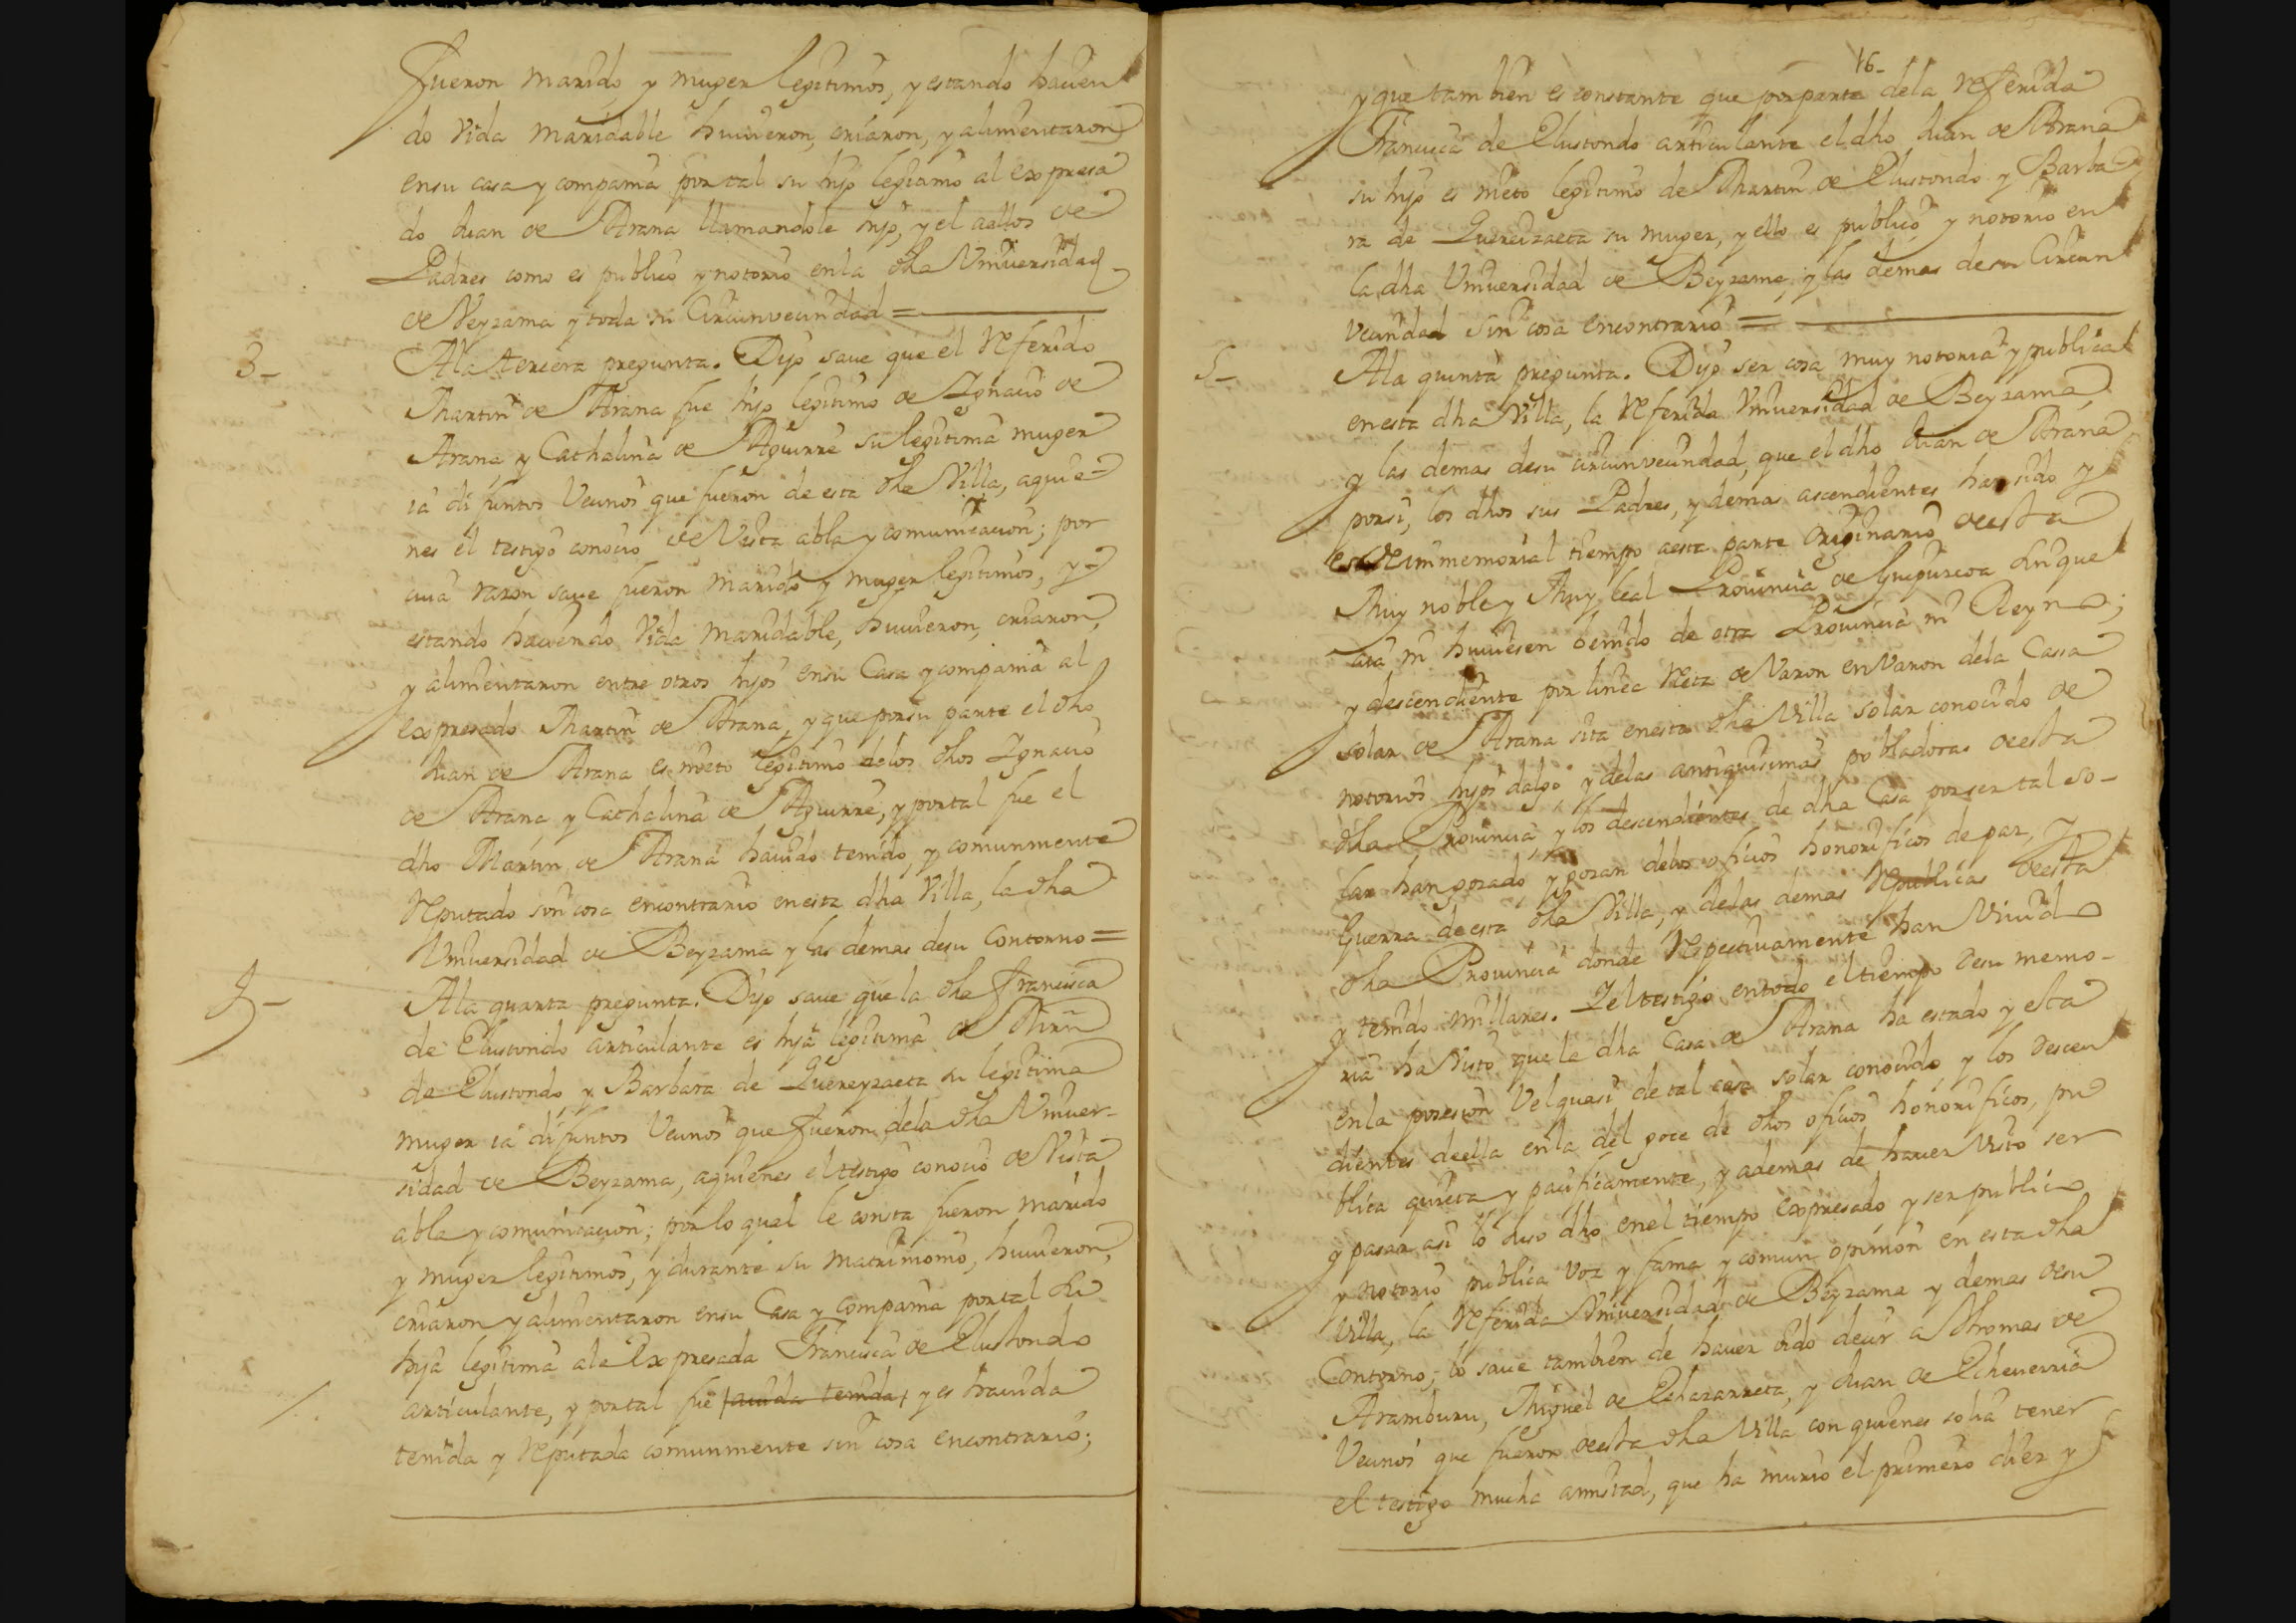 fueron marido y muger legitimos, y estando hacien
do Vida maridable huuieron, criaron, y alimentaron
ensu casa y compania por tal su hijo legitimo al expresa
do Juan de Arana llamandole hijo, y el aellos de
Padres como es publico y notorio enla dha Vniuersidad
de Veyzama y toda su Circunvecindad =
3_
Ala tercera pregunta. Dijo saue que el Referido
Martin de Arana fue hijo legitimo de Ignacio de
Arana, y Cathalina de Aguirre su legitima muger
ia difuntos Vecinos que fueron de esta dha Villa, aquie-
nes el testigo conocio de Vista abla y comunicacion; por
cuia razon saue fueron marido y muger legitimos, y
estando haciendo Vida maridable, huuieron, criaron,
y alimentaron entre otros hijos ensu Casa y compania al
expresado Martin de Arana, y que porsu parte el dho
Juan de Arana es nieto legitimo delos dhos Ignacio
de Arana y Cathalina de Aguirre, y portal fue el
dho Martin de Arana hauido tenido, y comunmente
Reputado sin cosa encontrario enesta dha Villa, la dha
Vniuersidad de Beyzama y las demas desu Contorno =
4_
Ala quarta pregunta. Dijo saue que la dha Francisca
de Elustondo articulante es hija legitima de Mrn
de Elustondo y Barbara de Quereyzaeta su legitima
muger ia difuntos Vecinos que fueron dela dha Vniuer-
sidad de Beyzama, aquienes el testigo conocio de Vista
abla y comunicacion; por lo qual le consta fueron marido
y muger legitimos, y durante su matrimonio, huuieron,
criaron y alimentaron ensu Casa y Compania portal su
hija legitima ala Expresada Francisca de Elustondo
articulante, y portal fue hauida tenida y es hauida
tenida y Reputada comunmente sin cosa encontrario;
16_
y que tambien es constante que porparte dela Referida
Francisca de Elustondo articulante el dho Juan de Arana
su hijo es nieto legitimo de Martin de Elustondo y Barba
ra de Quereizaeta su muger, y ello es publico y notorio en
la dha Vniuersidad de Beyzama, y las demas desu Circun
vecindad sin cosa encontrario =
5_
Ala quinta pregunta. Dijo ser cosa muy notoria y publica
enesta dha Villa, la Referida Vniuersidad de Beyzama,
y las demas desu circunvecindad, que el dho Juan de Arana
porsi, los dhos sus Padres, y demas ascendientes han sido y
es de immemorial tiempo aesta parte originario deesta
Muy noble y Muy leal Prouincia de Guipuzcoa sin que
aia ni huuiesen benido de otra Prouincia ni Reyno;
y descendiente por linea Recta de Varon enVaron dela Cassa
solar de Arana sita enesta dha Villa solar conocido de
notorios hijos dalgo y delas antiquisimas pobladoras deesta
dha Prouincia y los descendientes de dha Casa porser tal so-
lar han gozado y gozan delos oficios honorificos de paz, y
Guerra deesta dha Villa, y delas demas Republicas deesta
dha Prouincia donde Respectiuamente han Viuido
y tenido millares. Y el testigo entodo el tiempo desu memo-
ria ha Visto que la dha Casa de Arana ha estado y esta
enla posesion Velquasi de tal casa solar conocido y los descen
dientes deella enla del goce de dhos oficios honorificos, pu
blica quieta y pacificamente, y ademas de hauer Visto ser
y pasar asi lo diso dho enel tiempo expresado y ser publico
y notorio publica voz y fama y comun opinion en esta dha
Villa, la Referida Vniuersidad de Beyzama y demas desu
Contorno; lo saue tambien de hauer oido decir a Thomas de
Aramburu, Miguel de Echazarreta, y Juan de Echeuerria
Vecinos que fueron deesta dha Villa con quienes solia tener
el testigo mucha amistad, que ha murio el primero diez y